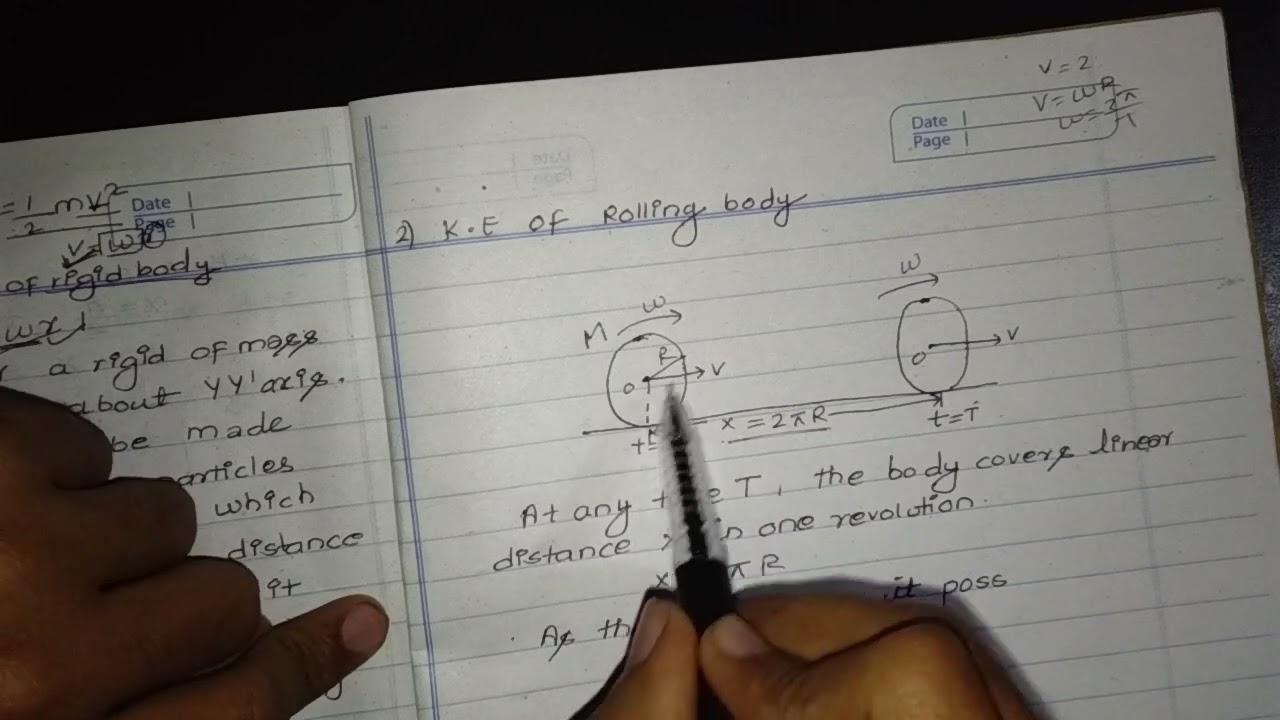 = 1/2 mv²
Date
Page
of rigid body
a rigid of mass
about YY' axis.
be made
particles
which
distance
it
V = 2
V = ωR
Date
Page
2) K.E of Rolling body
M ω
R
O V
ω
O V
x = 2πR
t=T
At any T, the body covers linear
distance in one revolution.
x πR
As it poss